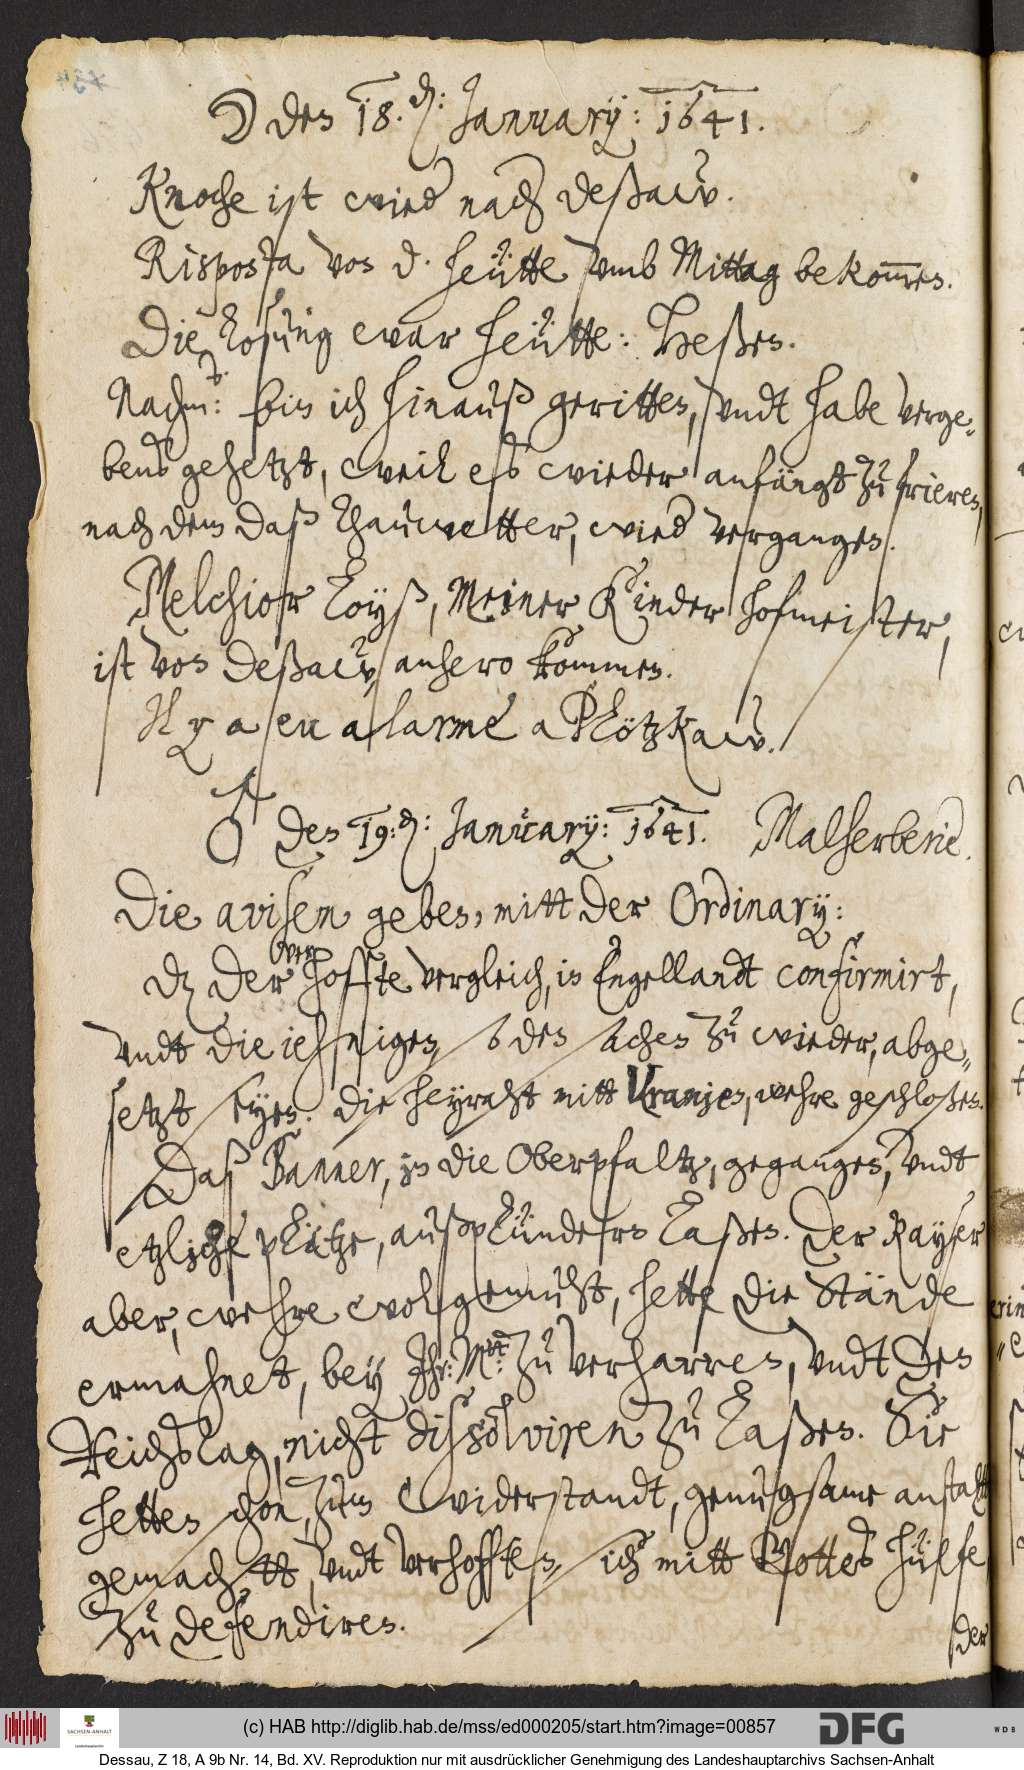 ☽ den 18. d: January: 1641.
Knoche ist wied nach Deßaw.
Risposta von d. heütte vmb Mittag bekom̅en.
Die Losung war heütte: Heßen.
Nachm: bin ich hinauß geritten, vndt habe verge-
bens gehetzt, weil es wieder anfängt zu frieren,
nach dem daß thauwetter, wied vergangen.
Melchior Loyß, Meiner Kinder hofmeister,
ist von Deßaw, anhero kommen.
Il y a eu alarme a Plötzkaw.
♂ den 19. d: January: 1641. Malherberie.
Die avisen geben, mitt der Ordinary:
dz der verhoffte vergleich, in Engellandt confirmirt,
vndt die iehnigen, so den sachen zu wieder, abge-
setzt seyen. die heyraht mitt Vranien, wehre geschloßen.
Daß Banner, in die Oberpfaltz, gegangen, vndt
etzliche plätze, außplündern laßen. Der Kayser
aber, wehre wolgemuht, hette die Stände
ermahnet, bey Ihr: Mtt: zu verharren, vndt den
Reichstag, nicht dissolviren zu laßen. Sie
hetten schon, zum widerstandt, genugsame anstaltt
gemachtt, vndt verhofften, sich mitt Gottes hülfe
zu defendiren.
der
(c) HAB http://diglib.hab.de/mss/ed000205/start.htm?image=00857
SACHSEN-ANHALT
DFG
WDB
Dessau, Z 18, A 9b Nr. 14, Bd. XV. Reproduktion nur mit ausdrücklicher Genehmigung des Landeshauptarchivs Sachsen-Anhalt